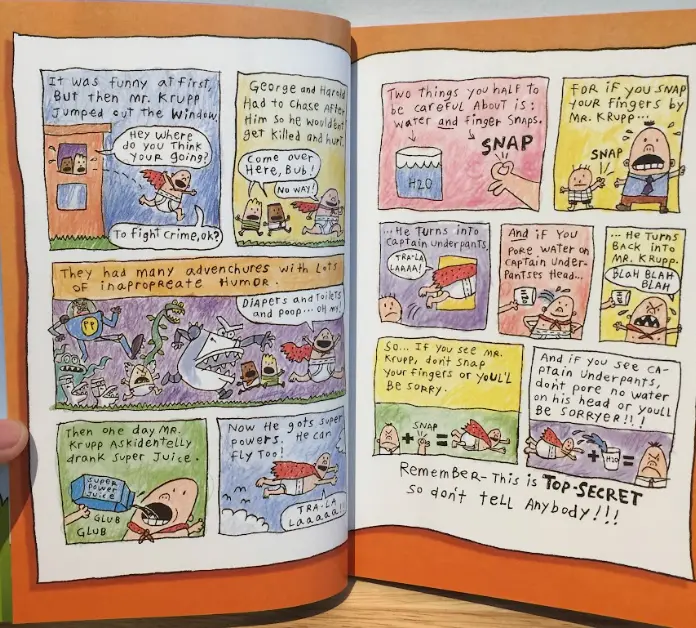 It was funny at first,
But then Mr. Krupp
Jumped out the window.
Hey where
do you think
your going?
To fight crime, ok?
George and Harold
Had to chase After
Him so he wouldent
get killed and hurt.
Come over
Here, Bub!
No way!
They had many advenchures with Lots
of inapropreate Humor.
Diapers and toilets
and poop... oh my!
PP
Then one day Mr.
Krupp Askidentelly
drank super Juice.
Super
Power
Juice
GLUB
GLUB
Now He gots super
powers. He can
fly Too!
TRA-LA
LAAAAA!!
Two things you HALF to
be careful About is:
water and finger snaps.
SNAP
H2O
FOR if you SNAP
your fingers by
Mr. Krupp...
SNAP
...He turns into
Captain underpants.
TRA-LA
LAAAA!
And if you
pore water on
Captain Under-
pantses Head...
H2O
... He turns
BACK into
Mr. Krupp.
BLAH BLAH
BLAH
H2O
So... If you see Mr.
Krupp, don't snap
your fingers or you'll
Be sorry.
SNAP
+ =
And if you see Ca-
ptain Underpants,
dont pore no water
on his head or youll
BE SORRYER!!!
H2O
+ =
Remember- This is TOP-SECRET
So don't tell Anybody!!!